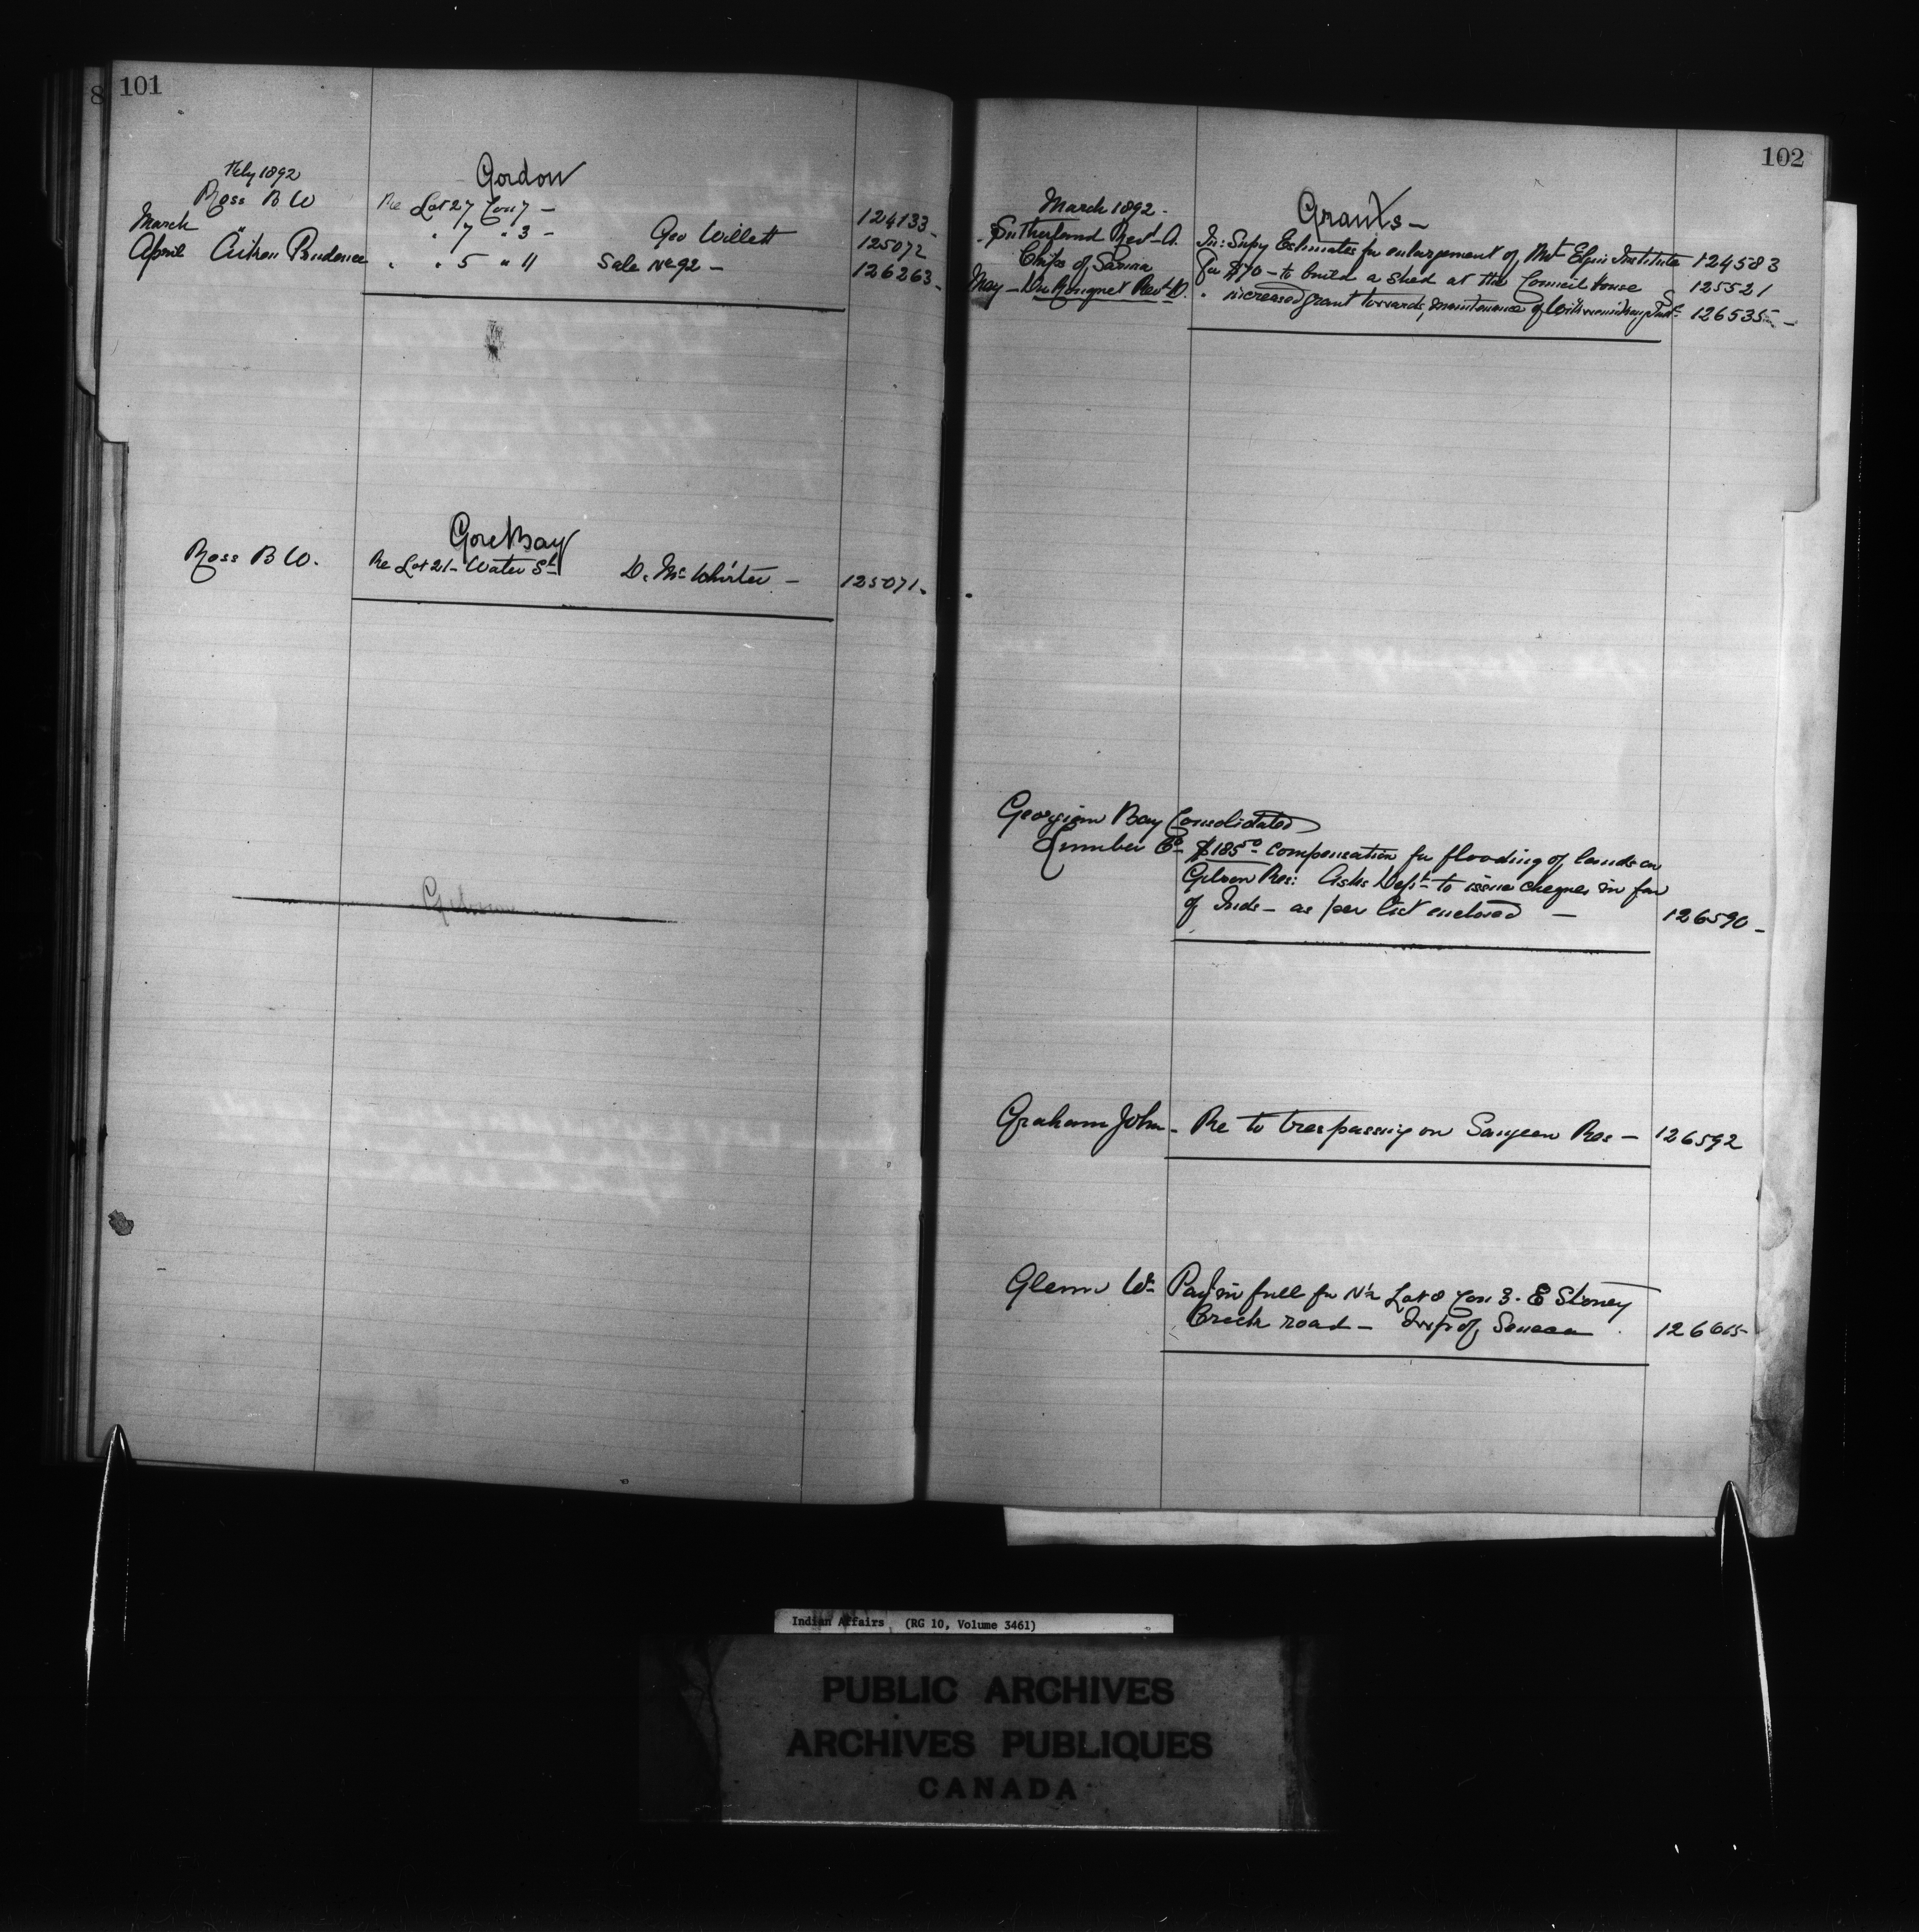 8 101
Feby 1892 Gordon
Ross B W Re Lot 27 Con 7 – 124133 -
March " " 7 " 3 – Geo Willett 125072
April Aitken Prudence " " 5 " 11 Sale No 92 – 126263 -
Gore Bay
Ross B W. Re Lot 21 - Water St D. McWhirter – 125071 -
Gibson
102
March 1892 - Grants –
Sutherland Revd A. In: Supy Estimates for enlargement of Mt Elgin Institute 124583
Chiefs of Sarnia For $70 – to build a shed at the Council House 125521
May – Du Ronquet Revd D. " increased grant towards maintenance of Inst 126535 -
Georgian Bay Consolidated
Lumber Co $185 50 compensation for flooding of lands on
Gibson Res: Asks Dept to issue cheques in fav
of Inds – as per list enclosed – 126590 -
Graham John - Re to trespassing on Saugeen Res – 126592
Glenn Wm Payt in full for N½ Lot 8 Con 3. E Stoney
Creek road – Twp of Seneca 126615
Indian Affairs (RG 10, Volume 3461)
PUBLIC ARCHIVES
ARCHIVES PUBLIQUES
CANADA